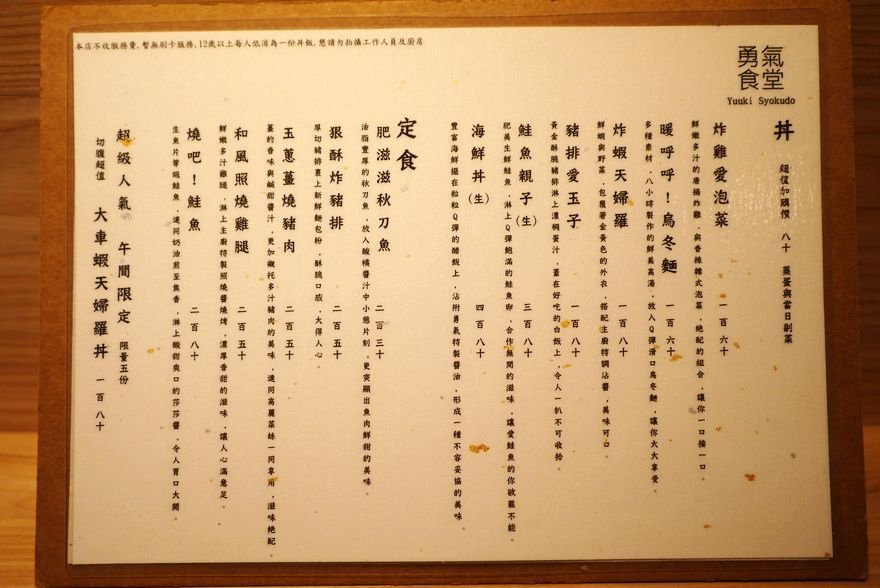 本店不收服務費，暫無刷卡服務，12歲以上每人低消為一份丼飯，懇請勿拍攝工作人員及廚房
勇氣食堂
Yuuki Syokudo
丼 超值加購價 八十 蒸蛋與當日副菜
炸雞愛泡菜 一百六十
鮮嫩多汁的唐揚炸雞，與香辣韓式泡菜，絕配的組合，讓你一口接一口。
暖呼呼！烏冬麵 一百六十
多種素材，八小時製作的鮮美高湯，放入Q彈滑口烏冬麵，讓你大大享受。
炸蝦天婦羅 一百八十
鮮蝦與野菜，包覆著金黃色的外衣，搭配主廚特調沾醬，美味可口。
豬排愛玉子 一百八十
黃金酥脆豬排淋上濃稠蛋汁，蓋在好吃的白飯上，令人一扒不可收拾。
鮭魚親子（生） 三百八十
肥美生鮮鮭魚，淋上Q彈飽滿的鮭魚卵，合作無間的滋味，讓愛鮭魚的你欲罷不能。
海鮮丼（生） 四百八十
豐富海鮮擺在粒粒Q彈的醋飯上，沾附勇氣特製醬油，形成一種不容妥協的美味。
定食
肥滋滋秋刀魚 二百三十
油脂豐厚的秋刀魚，放入酸橘醬汁中小憩片刻，更突顯出魚肉鮮甜的美味。
狠酥炸豬排 二百五十
厚切豬排裹上新鮮麵包粉，酥脆口感，大得人心。
玉蔥薑燒豬肉 二百五十
薑的香味與鹹甜醬汁，更加襯托多汁豬肉的美味，連同高麗菜絲一同享用，滋味絕配。
和風照燒雞腿 二百五十
鮮嫩多汁雞腿，淋上主廚特製照燒醬燒烤，濃厚香甜的滋味，讓人心滿意足。
燒吧！鮭魚 二百八十
生魚片等級鮭魚，連同奶油煎至焦香，淋上酸甜爽口的莎莎醬，令人胃口大開。
超級人氣 午間限定 限量五份
切腹超值 大車蝦天婦羅丼 一百八十